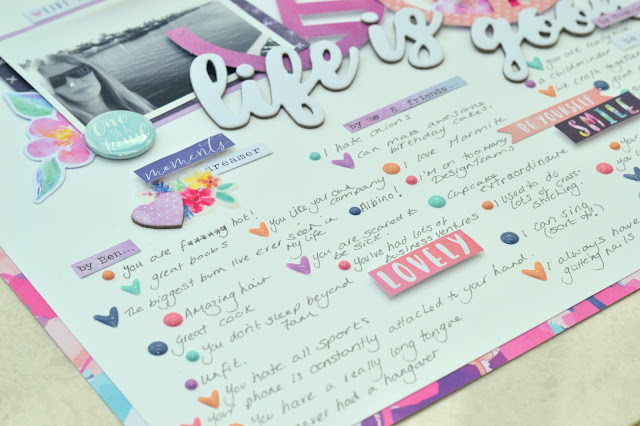 life is good
One of a kind
moments
dreamer
by me & friends...
BE YOURSELF
SMILE
LOVELY
I hate onions
Can make awesome birthday cakes.
I love Marmite
I'm on too many Design Teams
Cupcake extraordinaire
I used to do lots of cross-stitching.
I can sing (sort of!)
I always have glittery nails
a childminder
by Ben...
you are f****** hot!
great boobs
The biggest bum I've ever seen in my life
you like your own company
Albino!
you are scared to be sick.
you've had lots of business ventures
Amazing hair
great cook
You don't sleep beyond 7am.
unfit.
You hate all sports
Your phone is constantly attached to your hand!
You have a really long tongue
never had a hangover